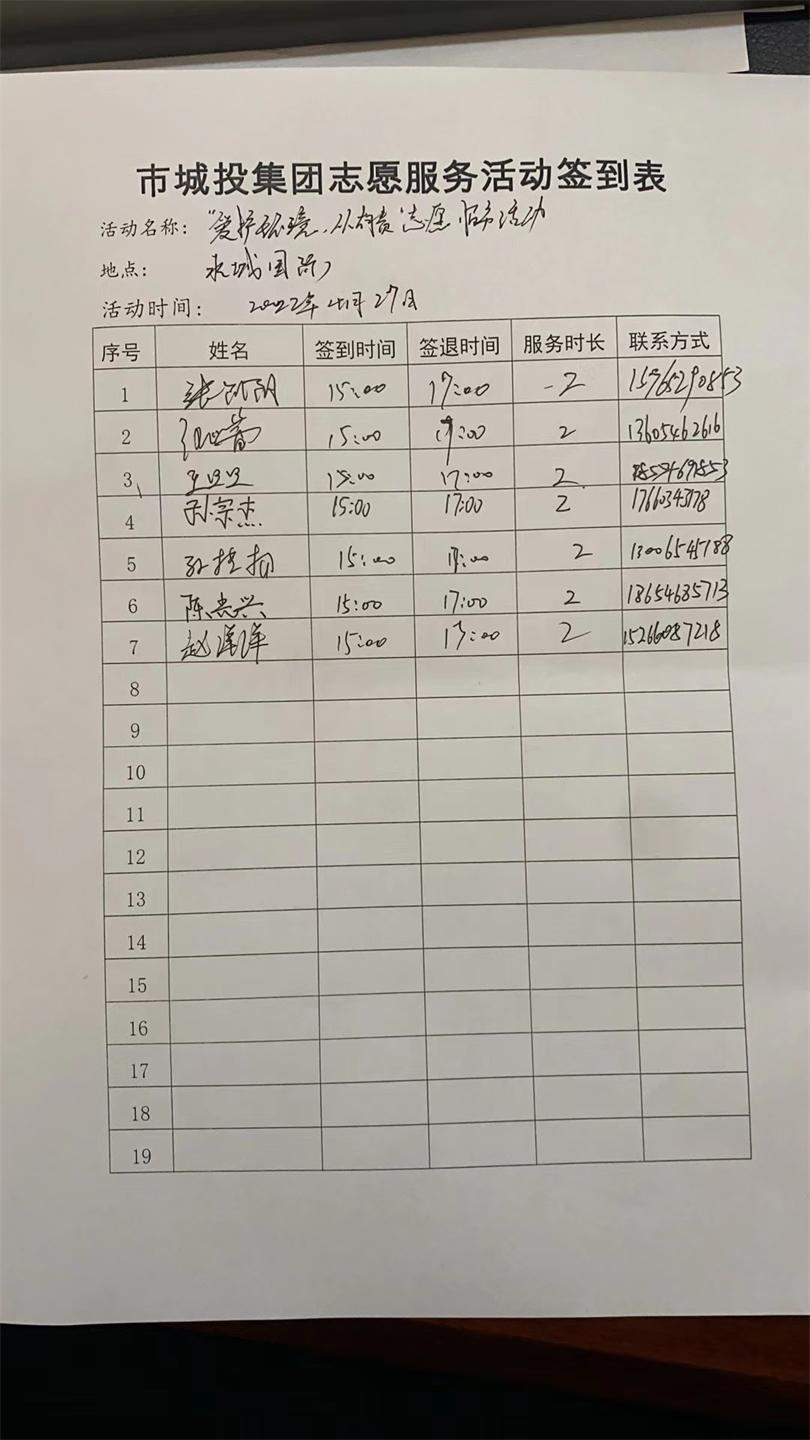 市城投集团志愿服务活动签到表
活动名称： "爱护环境、人人有责"志愿服务活动
地点：
活动时间： 2022年4月27日
序号 姓名 签到时间 签退时间 服务时长 联系方式
1 15:00 17:00 2 15765290853
2 15:00 17:00 2 13605462616
3 15:00 17:00 2
4 孙宗杰 15:00 17:00 2
5 15:00 17:00 2 13006545188
6 陈忠兴 15:00 17:00 2 18654685713
7 赵泽泽 15:00 17:00 2 15266087218
8
9
10
11
12
13
14
15
16
17
18
19